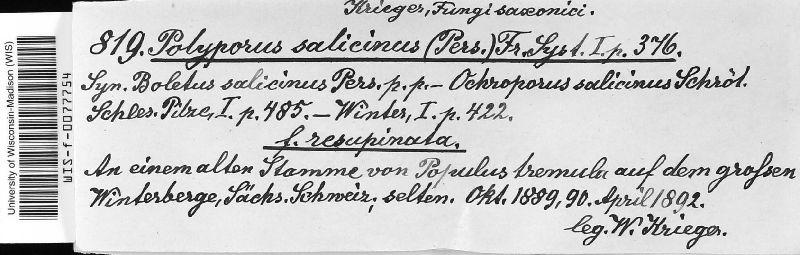 Krieger, Fungi saxonici.
819. Polyporus salicinus (Pers.) Fr. Syst. I. p. 376.
Syn. Boletus salicinus Pers. p. p. – Ochroporus salicinus Schröt.
Schles. Pilze, I. p. 485. – Winter, I. p. 422.
f. resupinata.
An einem alten Stamme von Populus tremula auf dem grossen
Winterberge, Sächs. Schweiz, selten. Okt. 1889, 90. April 1892.
leg. W. Krieger.
University of Wisconsin-Madison (WIS)
WIS-f-0077754